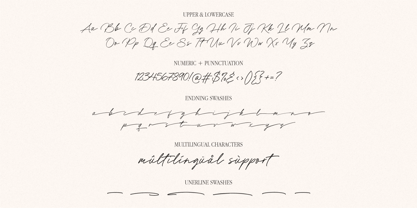 UPPER & LOWERCASE
Aa Bb Cc Dd Ee Ff Gg Hh Ii Jj Kk Ll Mm Nn
Oo Pp Qq Rr Ss Tt Uu Vv Ww Xx Yy Zz
NUMERIC + PUNNCTUATION
1234567890!@#$%&
ENDNING SWASHES
a b c d e f g h i j k l m n o
p q r s t u v w x y z
MULTILINGUAL CHARACTERS
múltilingüál süppört
UNERLINE SWASHES